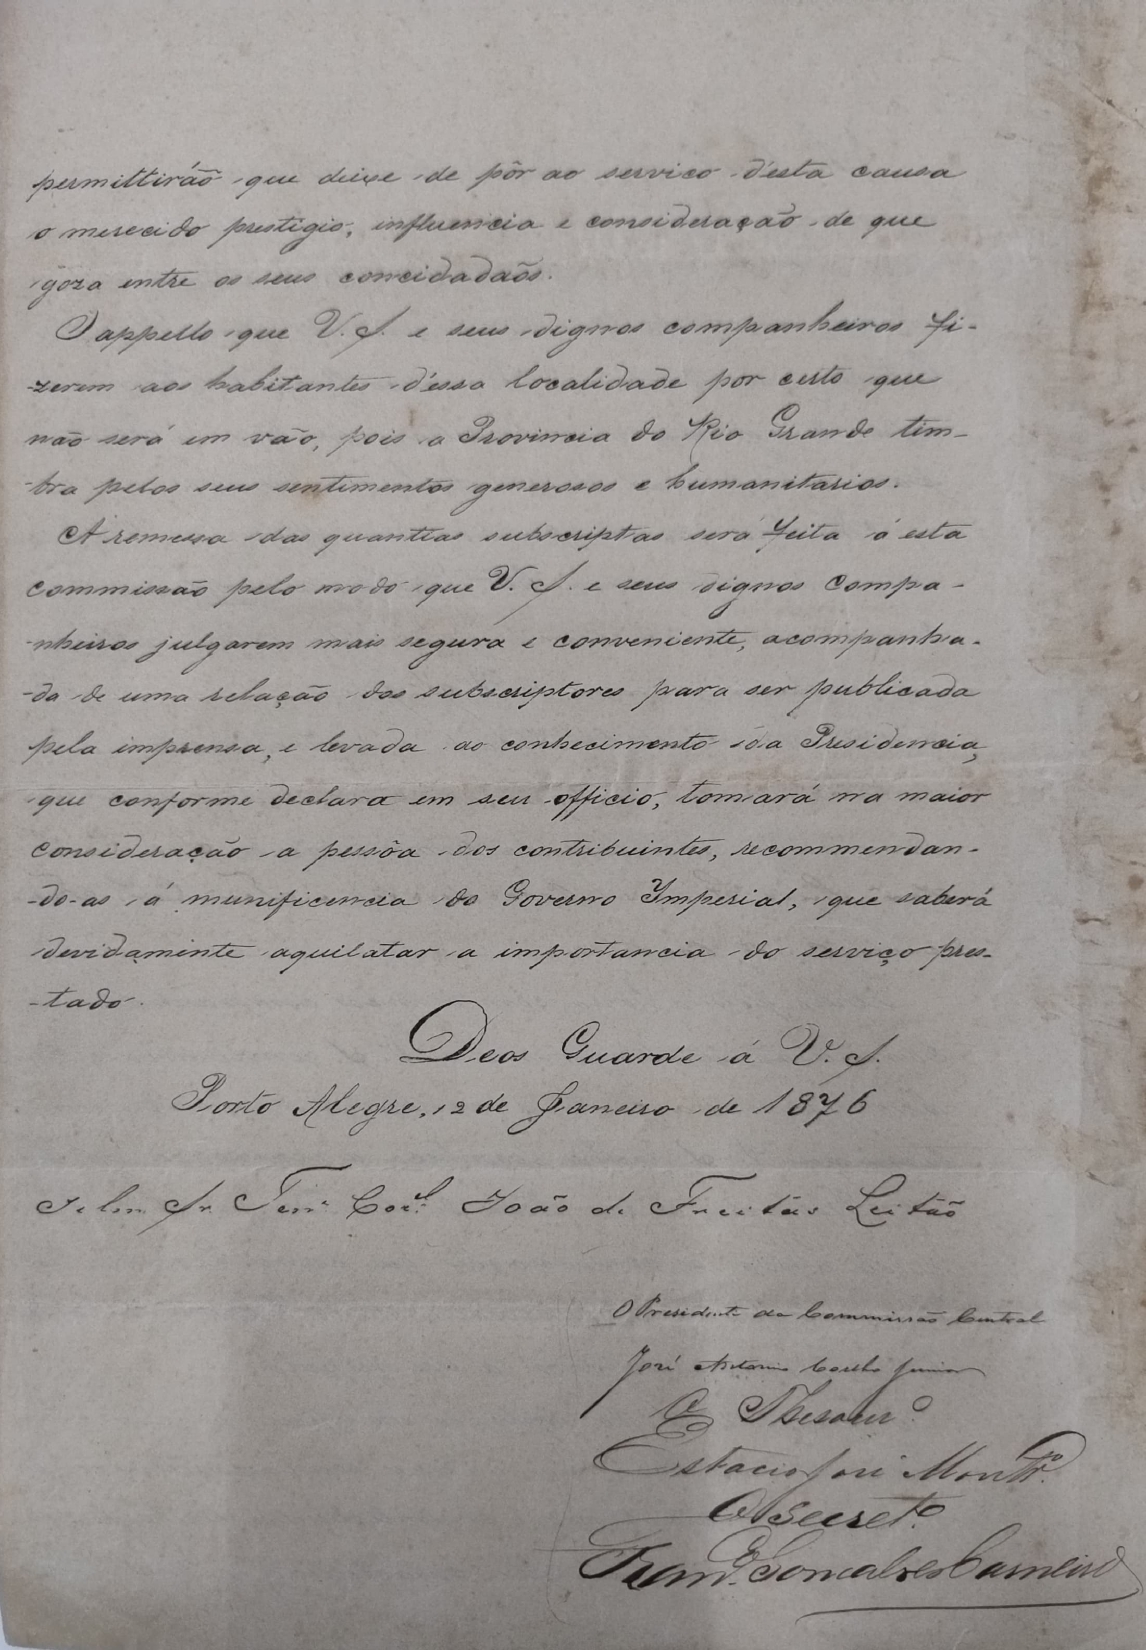 permittiráõ que deixe de pôr ao servico d'ésta causa
o merecido prestigio, influencia e consideração de que
goza entre os seus concidadaõs.
O appello que V. S. e seus dignos companheiros fi-
-zerem aos habitantes d'éssa localidade por certo que
naõ será em vão, pois a Provincia do Rio Grande tim-
-bra pelos seus sentimentos generosos e humanitarios.
A remessa das quantias subscriptas será feita á esta
commissaõ pelo modo que V. S. e seus dignos compa-
-nheiros julgarem mais segura e conveniente, acompanha-
-da de uma relação dos subscriptores para ser publicada
pela imprensa, e levada ao conhecimento da Presidencia,
que conforme declara em seu officio, tomará na maior
consideração a pessôa dos contribuintes, recommendan-
-do-as á munificencia do Governo Imperial, que saberá
devidamente aquilatar a importancia do serviço pres-
-tado.
Deos Guarde á V. S.
Porto Alegre, 12 de Janeiro de 1876
Illm Sr. Tene Corel João de Freitas Leitão
O Presidente da Commissão Central
José Antonio Coelho Junior
O Thesour.º
Estacio José Montr.º
O Secret.º
Fran.co Gonçalves Carneiro